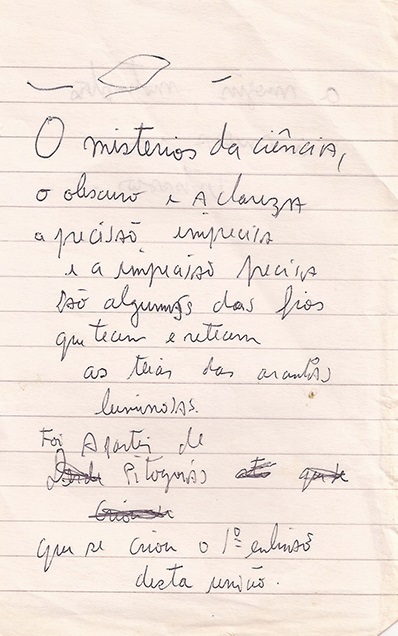 O misterios da ciência,
o obscuro e A clareza
a precisão imprecisa
e a imprecisão precisa
são algumas das fios
que tecem e retecem
as teias das aranhas
luminosas.
Foi A partir de
Desde Pitogorás até que
que se criou o 1º embrião
desta união.